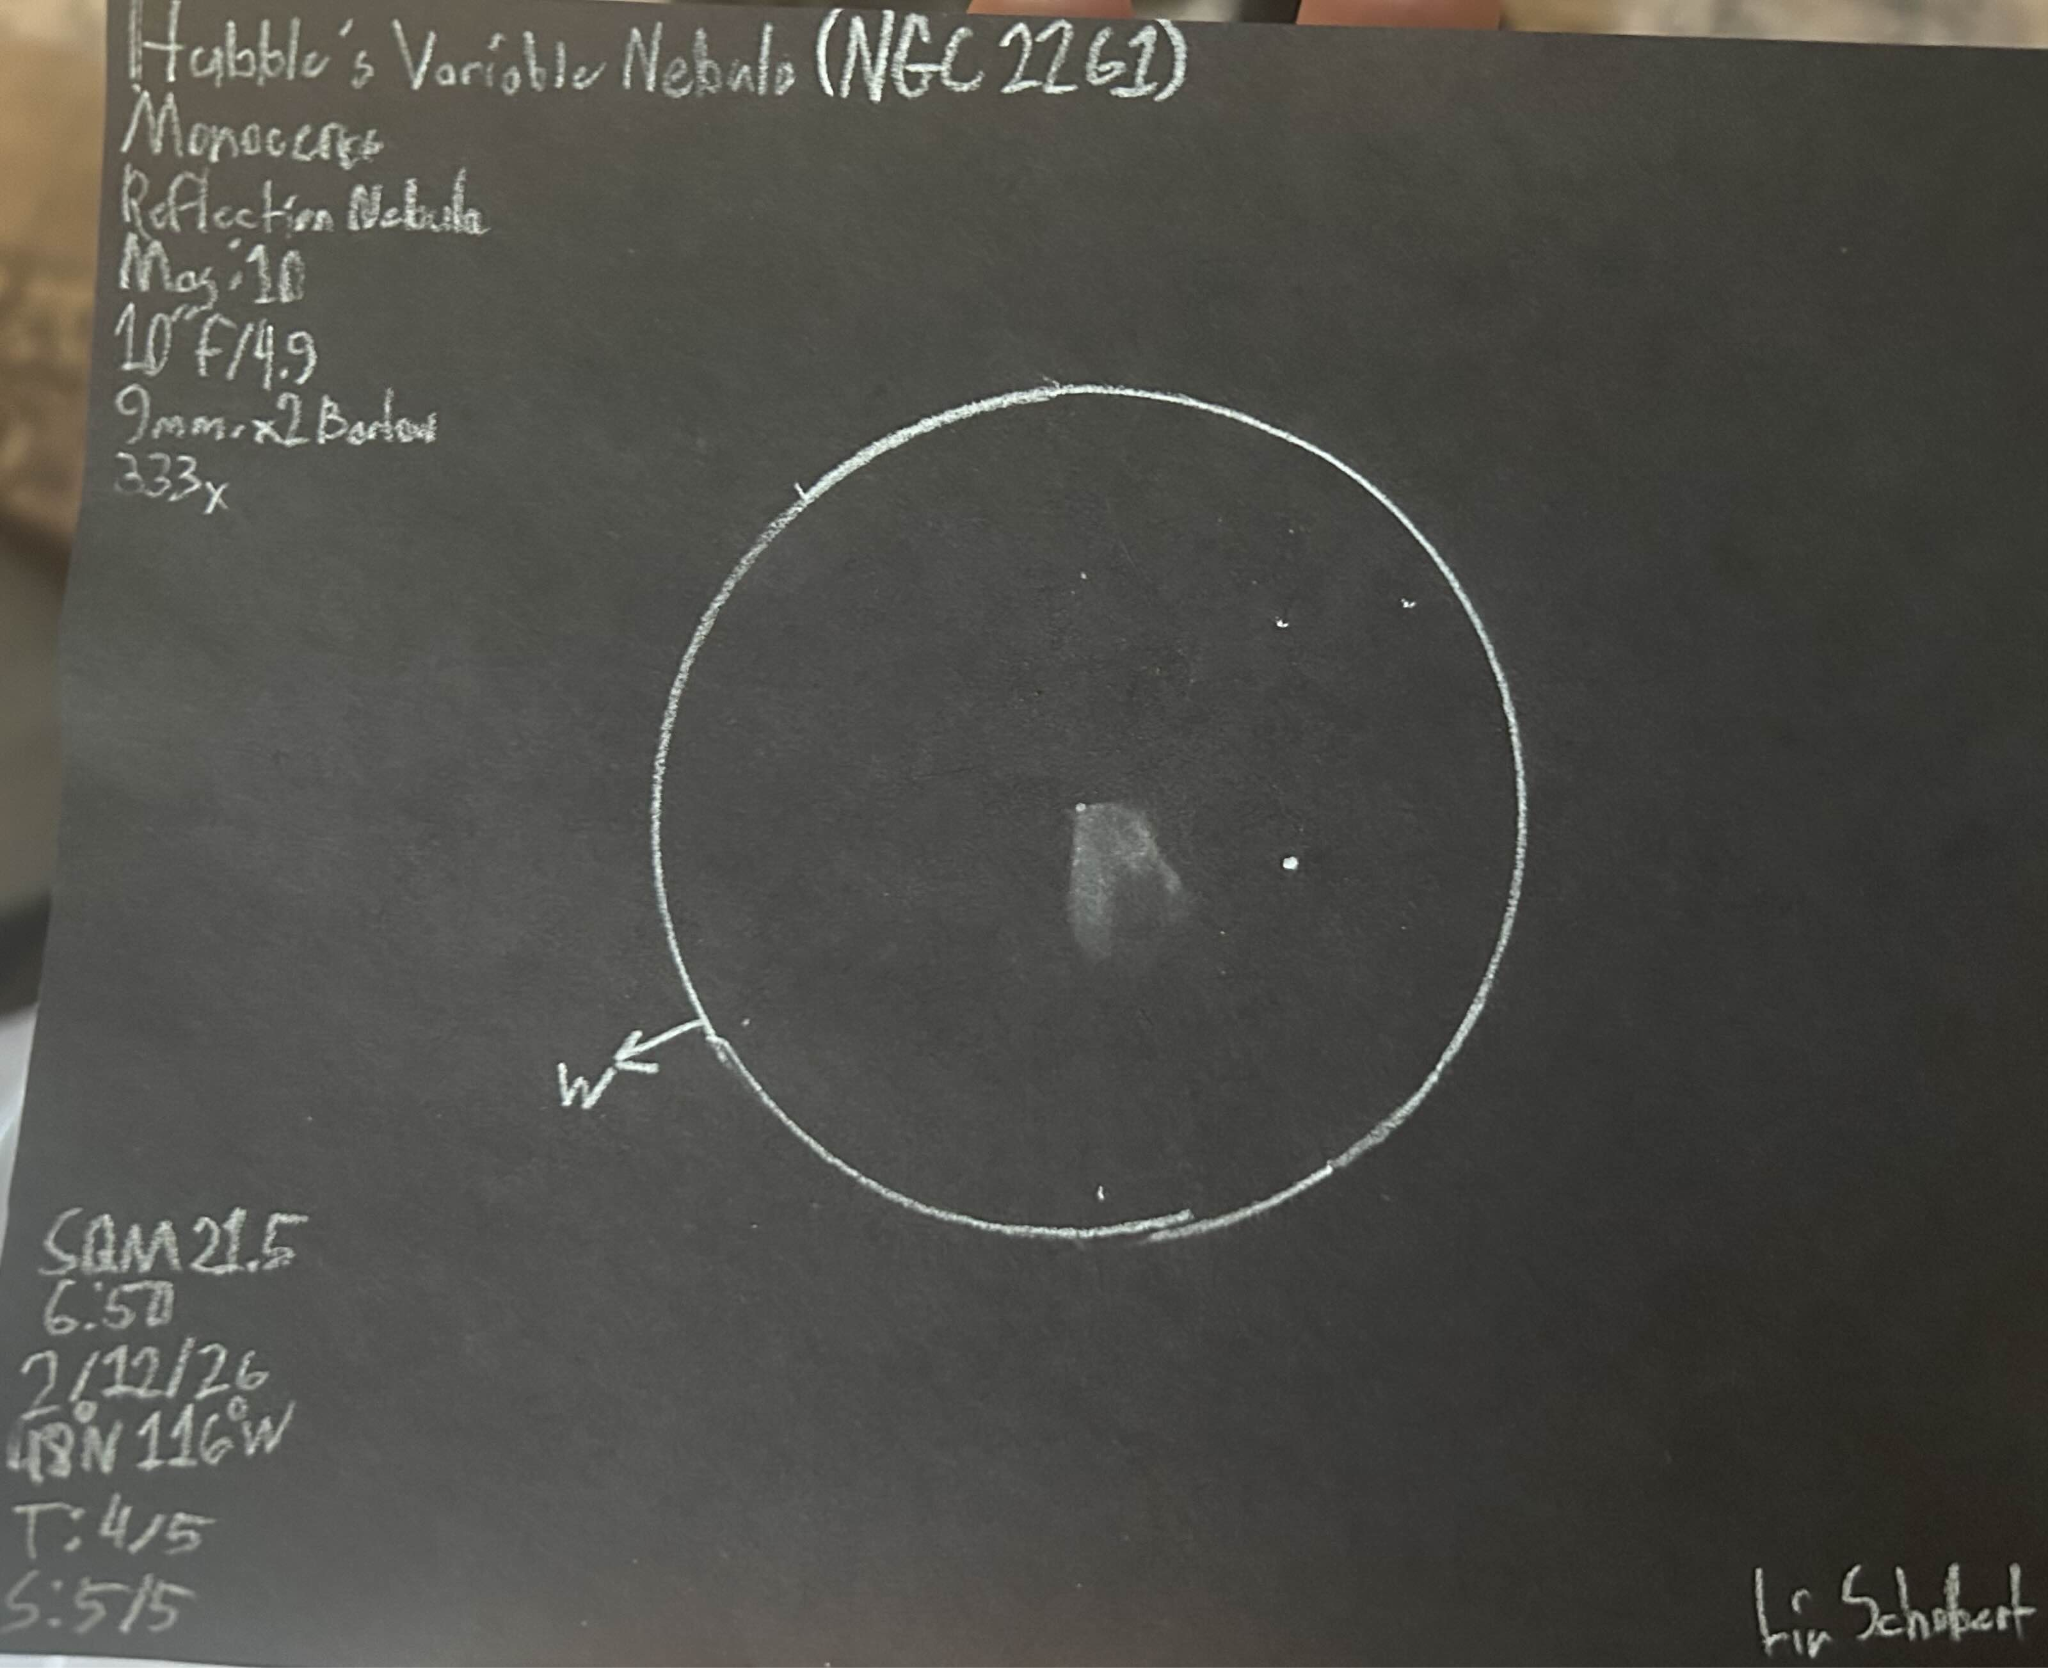 Hubble's Variable Nebula (NGC 2261)
Monoceros
Reflection Nebula
Mag: 10
10" F/4.9
9mm. x2 Barlow
333x
W
SQM 21.5
6:50
2/12/26
48°N 116°W
T: 4/5
S: 5/5
Liv Schobert